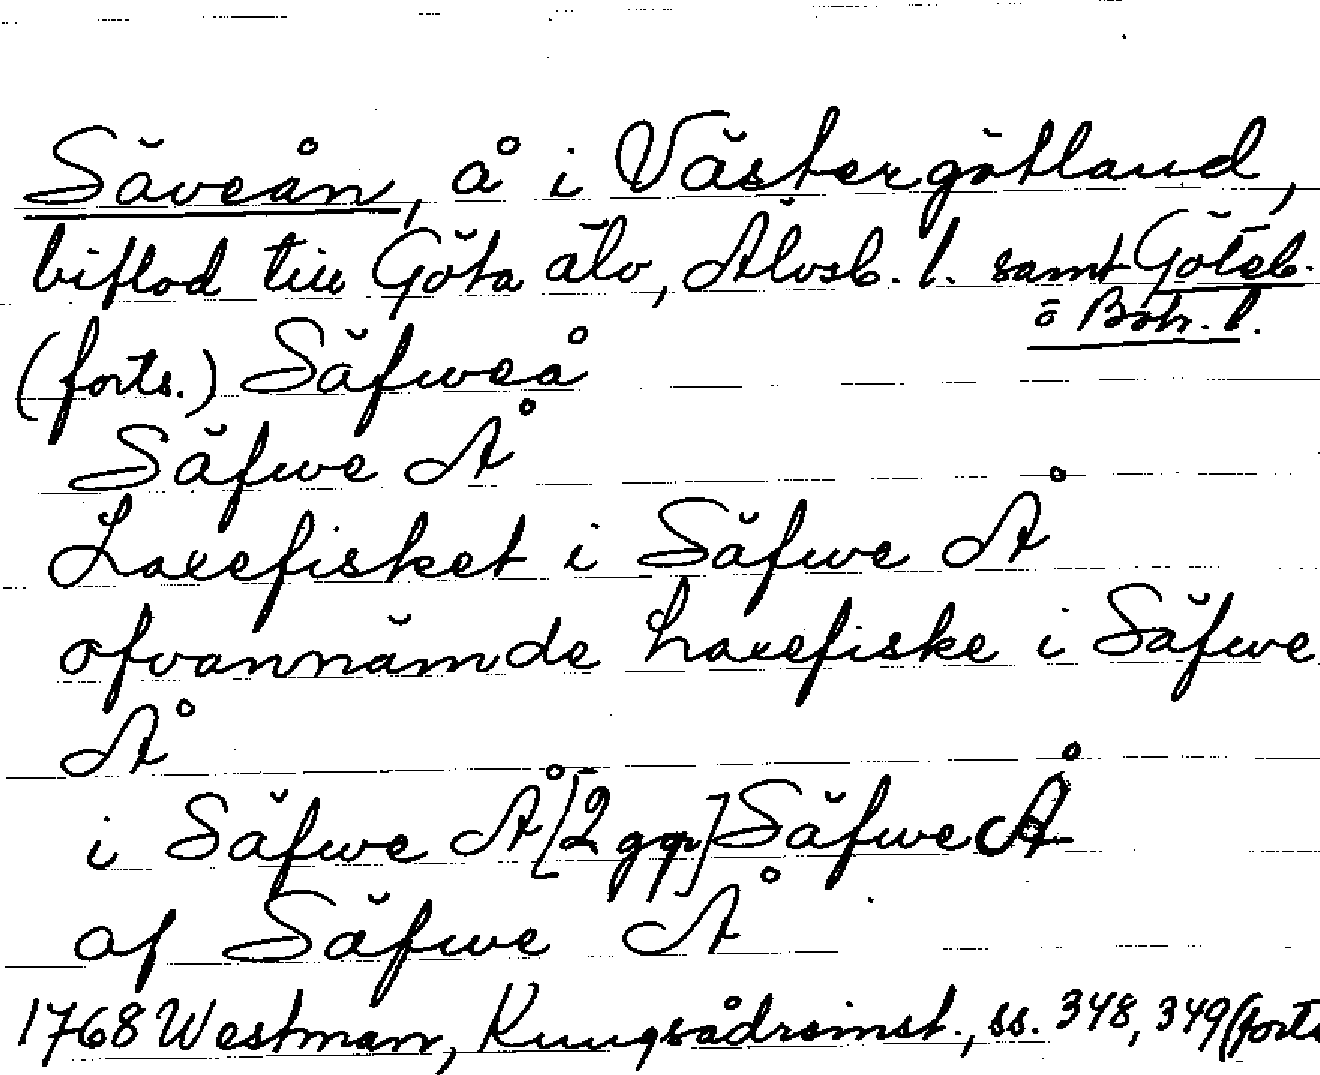 Säveån, å i Västergötland,
biflod till Göta älv, Älvsb. l. samt Göteb.
o Boh. l.
(forts.) Säfweå
Säfwe Å
Laxefisket i Säfwe Å
ofvannämde Laxefiske i Säfwe
Å
i Säfwe Å [2 ggr] Säfwe Å
af Säfwe Å
1768 Westman, Kungsådreinst., ss. 348, 349 (forts